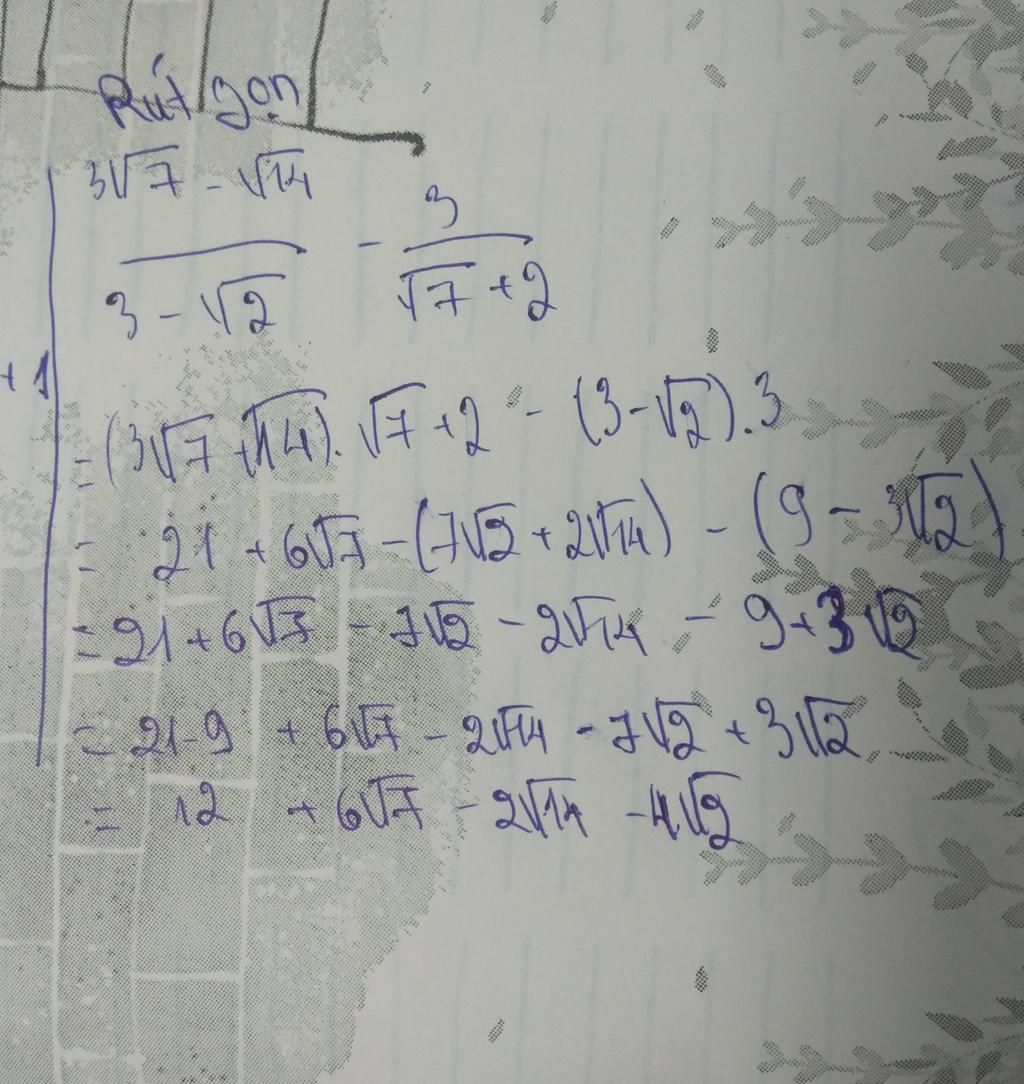 Rút gọn
3√7 - √14
3
-
3 - √2
√7 + 2
+ 1
= (3√7 + √14). √7 + 2 - (3-√2).3
= 21 + 6√7 - (7√2 + 2√14) - (9 - 3√2)
= 21 + 6√7 - 7√2 - 2√14 - 9 + 3√2
= 21-9 + 6√7 - 2√14 - 7√2 + 3√2
= 12 + 6√7 - 2√14 - 4√2